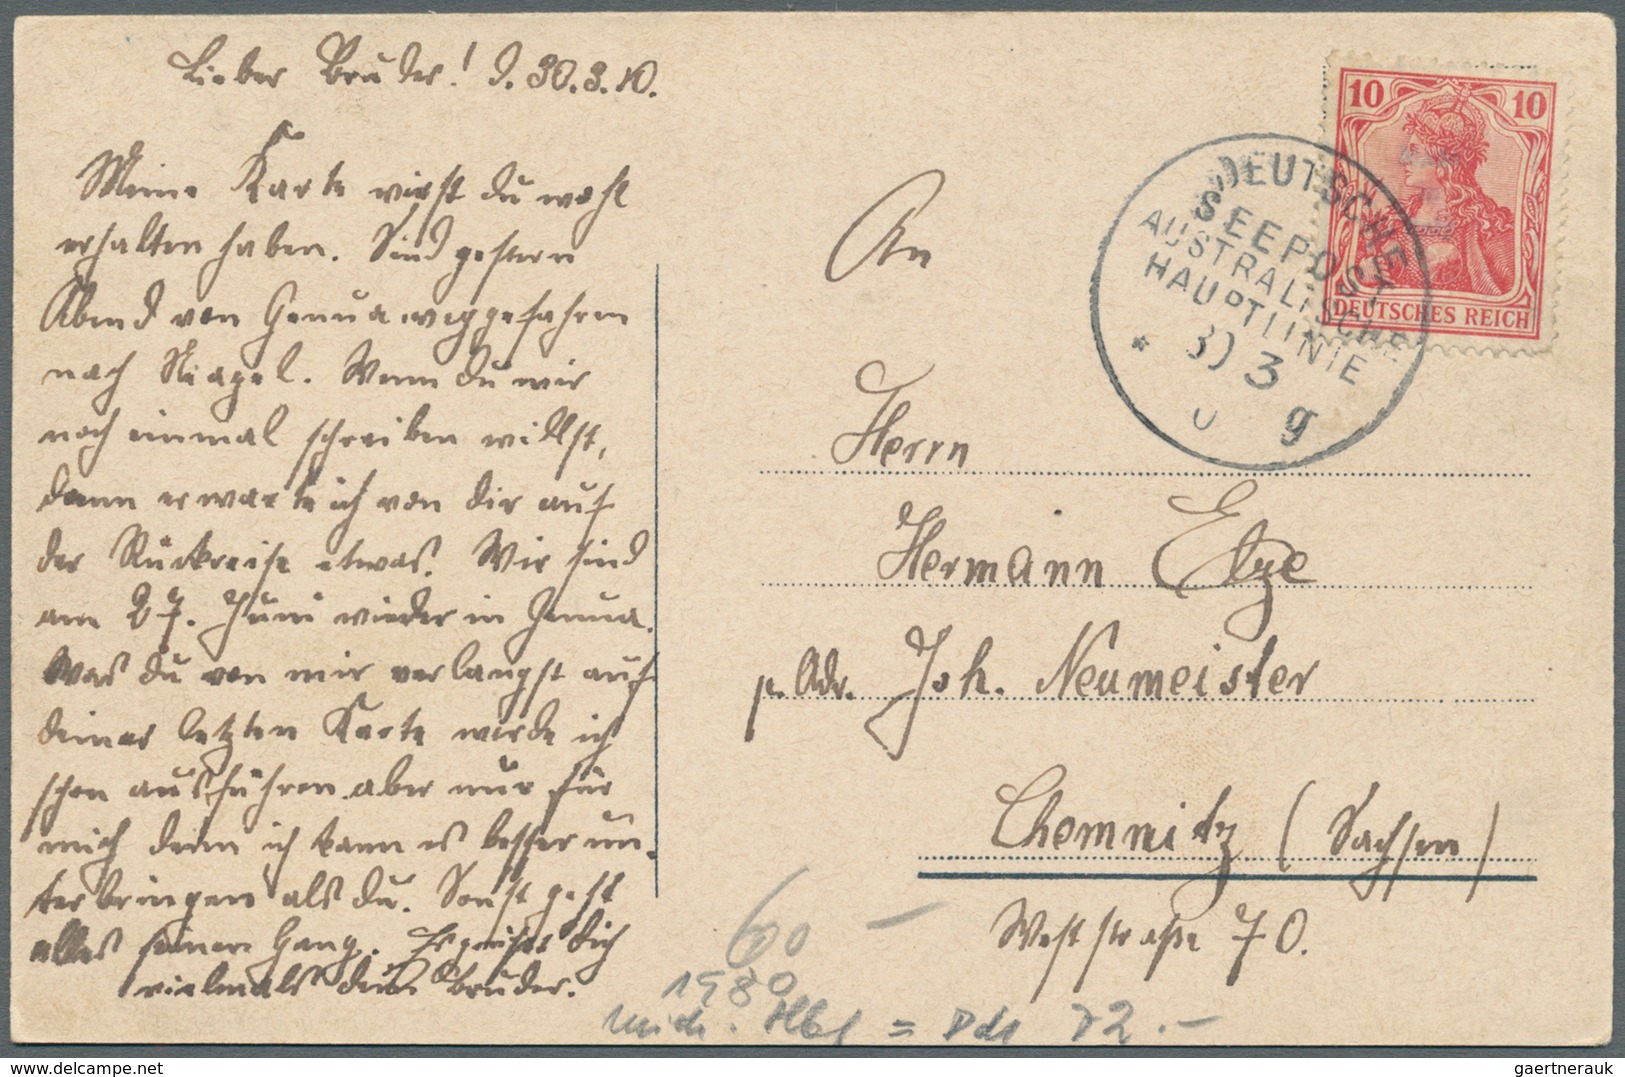 Lieber Bruder! d. 30.3.10.
Meine Karte wirst du wohl
erhalten haben. Sind gestern
Abend von Genua weggefahren
nach Neapel. Wenn du mir
noch einmal schreiben willst,
dann erwarte ich von dir auf
der Rückreise etwas. Wir sind
am 27. Juni wieder in Genua.
Was du von mir verlangst auf
deiner letzten Karte werde ich
schon ausführen aber nur für
mich denn ich kann es besser un-
terbringen als du. Sonst geht
alles seinen Gang. Es grüsst dich
vielmals dein Bruder.
10 10
DEUTSCHES REICH
DEUTSCHE
SEEPOST
AUSTRALISCHE
HAUPTLINIE
* 30 3
g
An
Herrn
Hermann Etze
p. Adr. Joh. Neumeister
Chemnitz (Sachsen)
Weststraße 70.
60 –
1980
Mich. Hbf = 72.-
www.delcampe.net
gaertnerauk